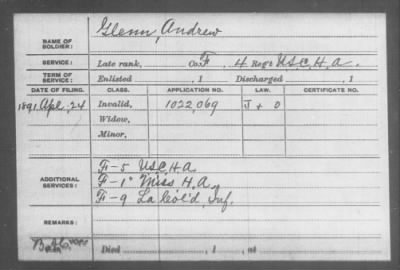 NAME OF SOLDIER: Glenn, Andrew
SERVICE: Late rank, Co. F, 4 Regt U.S.C.H.A.
TERM OF SERVICE: Enlisted , 1 Discharged , 1
DATE OF FILING. CLASS. APPLICATION NO. LAW. CERTIFICATE NO.
1891, Apl. 24 Invalid, 1022,069 J + D
Widow,
Minor,
ADDITIONAL SERVICES: F-5 U.S.C.H.A.
F-1" Miss. H.A.,
F-9 La. Col'd, Inf.
REMARKS:
Died , 1 , at